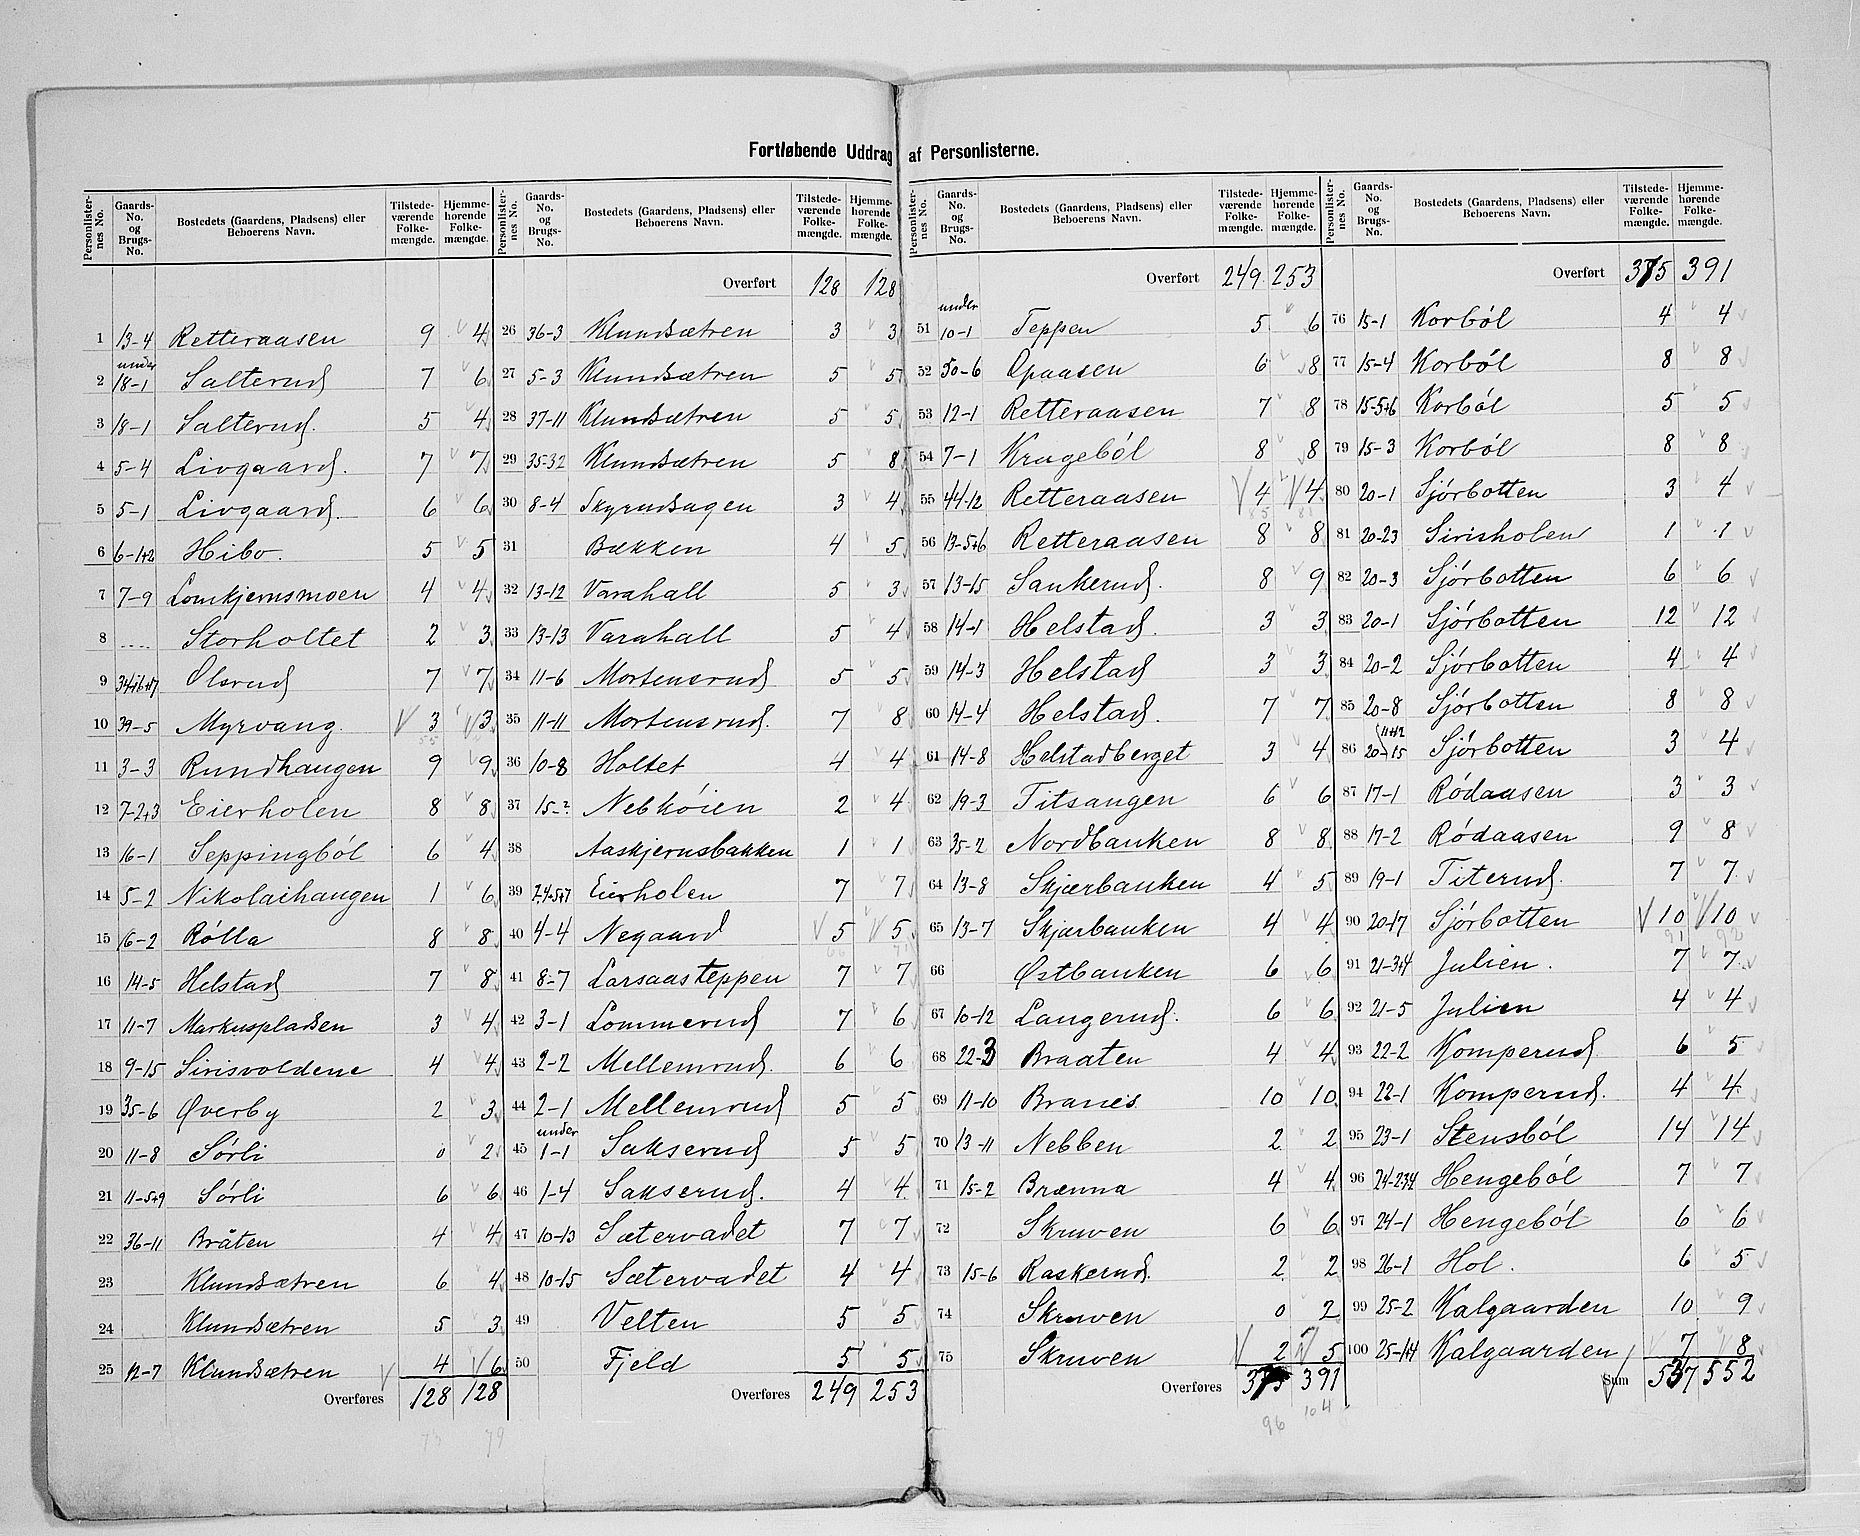 Fortløbende Uddrag af Personlisterne.
Personlister-nes No. | Gaards-No. og Brugs-No. | Bostedets (Gaardens, Pladsens) eller Beboerens Navn. | Tilstede-værende Folke-mængde. | Hjemme-hørende Folke-mængde.
1 13-4 Retteraasen 9 4
2 under 18-1 Salterud 7 6
3 18-1 Salterud. 5 4
4 5-4 Livgaard. 7 7
5 5-1 Livgaard. 6 6
6 6-1+2 Hibo. 5 5
7 7-9 Lomkjernsmoen 4 4
8 .... Storholtet 2 3
9 Olsrud 7 7
10 39-5 Myrvang. 3 3
11 3-3 Rundhaugen 9 9
12 7-2+3 Eierholen 8 8
13 16-1 Seppingból 6 4
14 5-2 Nikolaihaugen 1 6
15 16-2 Rólla 8 8
16 14-5 Helstad 7 8
17 11-7 Markuspladsen 3 4
18 9-15 Sirisvoldene 4 4
19 35-6 Øverby 2 3
20 11-8 Sórli 0 2
21 11-5+9 Sórli 6 6
22 36-11 Bråten 4 4
23 Klundsætren 6 4
24 Klundsætren 5 3
25 12-7 Klundsætren 4 6
Overføres 128 128
73 79
Personlister-nes No. | Gaards-No. og Brugs-No. | Bostedets (Gaardens, Pladsens) eller Beboerens Navn. | Tilstede-værende Folke-mængde. | Hjemme-hørende Folke-mængde.
Overført 128 128
26 36-3 Klundsætren 3 3
27 5-3 Klundsætren 5 5
28 37-11 Klundsætren 5 5
29 35-32 Klundsætren 5 8
30 8-4 Skyrudsagen 3 4
31 Bækken 4 5
32 13-12 Varahall 5 3
33 13-13 Varahall 5 4
34 11-6 Mortensrud 5 5
35 11-11 Mortensrud. 7 8
36 10-8 Holtet 4 4
37 15-? Nebhóien 2 4
38 Aaskjernsbakken 1 1
39 Eierholen 7 7
40 4-4 Negaard 5 5
41 8-7 Larsaasteppen 7 7
42 3-1 Lommerud 7 6
43 2-2 Mellemrud. 6 6
44 2-1 Mellemrud 5 5
45 under 1-1 Sakserud 5 5
46 1-4 Sakserud. 4 4
47 10-13 Sætervadet 7 7
48 10-15 Sætervadet 4 4
49 Velten 5 5
50 Fjeld 5 5
Overføres 249 253
Personlister-nes No. | Gaards-No. og Brugs-No. | Bostedets (Gaardens, Pladsens) eller Beboerens Navn. | Tilstede-værende Folke-mængde. | Hjemme-hørende Folke-mængde.
Overført 249 253
51 under 10-1 Teppen 5 6
52 50-6 Opaasen 6 8
53 12-1 Retteraasen 7 8
54 7-1 Krageból 8 8
55 44-12 Retteraasen 4 4
56 13-5+6 Retteraasen 8 8
57 13-15 Sankerud. 8 9
58 14-1 Helstad. 3 3
59 14-3 Helstad 3 3
60 14-4 Helstad. 7 7
61 14-8 Helstadberget 3 4
62 19-3 Titsangen 6 6
63 35-2 Nordbanken 8 8
64 13-8 Skjærbanken 4 5
65 13-7 Skjærbanken 4 4
66 Østbanken 6 6
67 10-12 Langerud. 6 6
68 22-3 Braaten 4 4
69 11-10 Branes 10 10
70 13-11 Nebben 2 2
71 15-2 Brænna 4 4
72 Skruven 6 6
73 15-6 Raskerud. 2 2
74 Skruven 0 2
75 Skruven 2 5
Overføres 375 391
96 104
Personlister-nes No. | Gaards-No. og Brugs-No. | Bostedets (Gaardens, Pladsens) eller Beboerens Navn. | Tilstede-værende Folke-mængde. | Hjemme-hørende Folke-mængde.
Overført 375 391
76 15-1 Korból 4 4
77 15-4 Korból 8 8
78 15-5+6 Korból 5 5
79 15-3 Korból 8 8
80 20-1 Sjórbotten 3 4
81 20-23 Sirisholen 1 1
82 20-3 Sjórbotten 6 6
83 20-1 Sjórbotten 12 12
84 20-2 Sjórbotten 4 4
85 20-8 Sjórbotten 8 8
86 20-15 11+12 Sjórbotten 3 4
87 17-1 Ródaasen 3 3
88 17-2 Ródaasen 9 8
89 19-1 Titerud. 7 7
90 20-17 Sjórbotten 10 10
91 92
91 21-3+4 Julien. 7 7
92 21-5 Julien 4 4
93 22-2 Komperud. 6 5
94 22-1 Komperud. 4 4
95 23-1 Stensból 14 14
96 24-2+3+4 Hengeból 7 7
97 24-1 Hengeból 6 6
98 26-1 Hol. 6 5
99 25-2 Kalgaarden 10 9
100 25-1+4 Kalgaarden 7 8
Sum 537 552